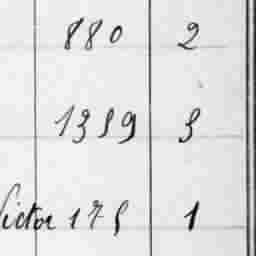 880 2
1359 3
Victor 175 1